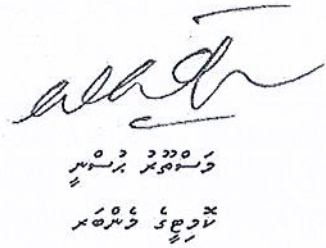 މަސްތޫރު ޙުސްނީ
ކޮމިޓީގެ މެންބަރ